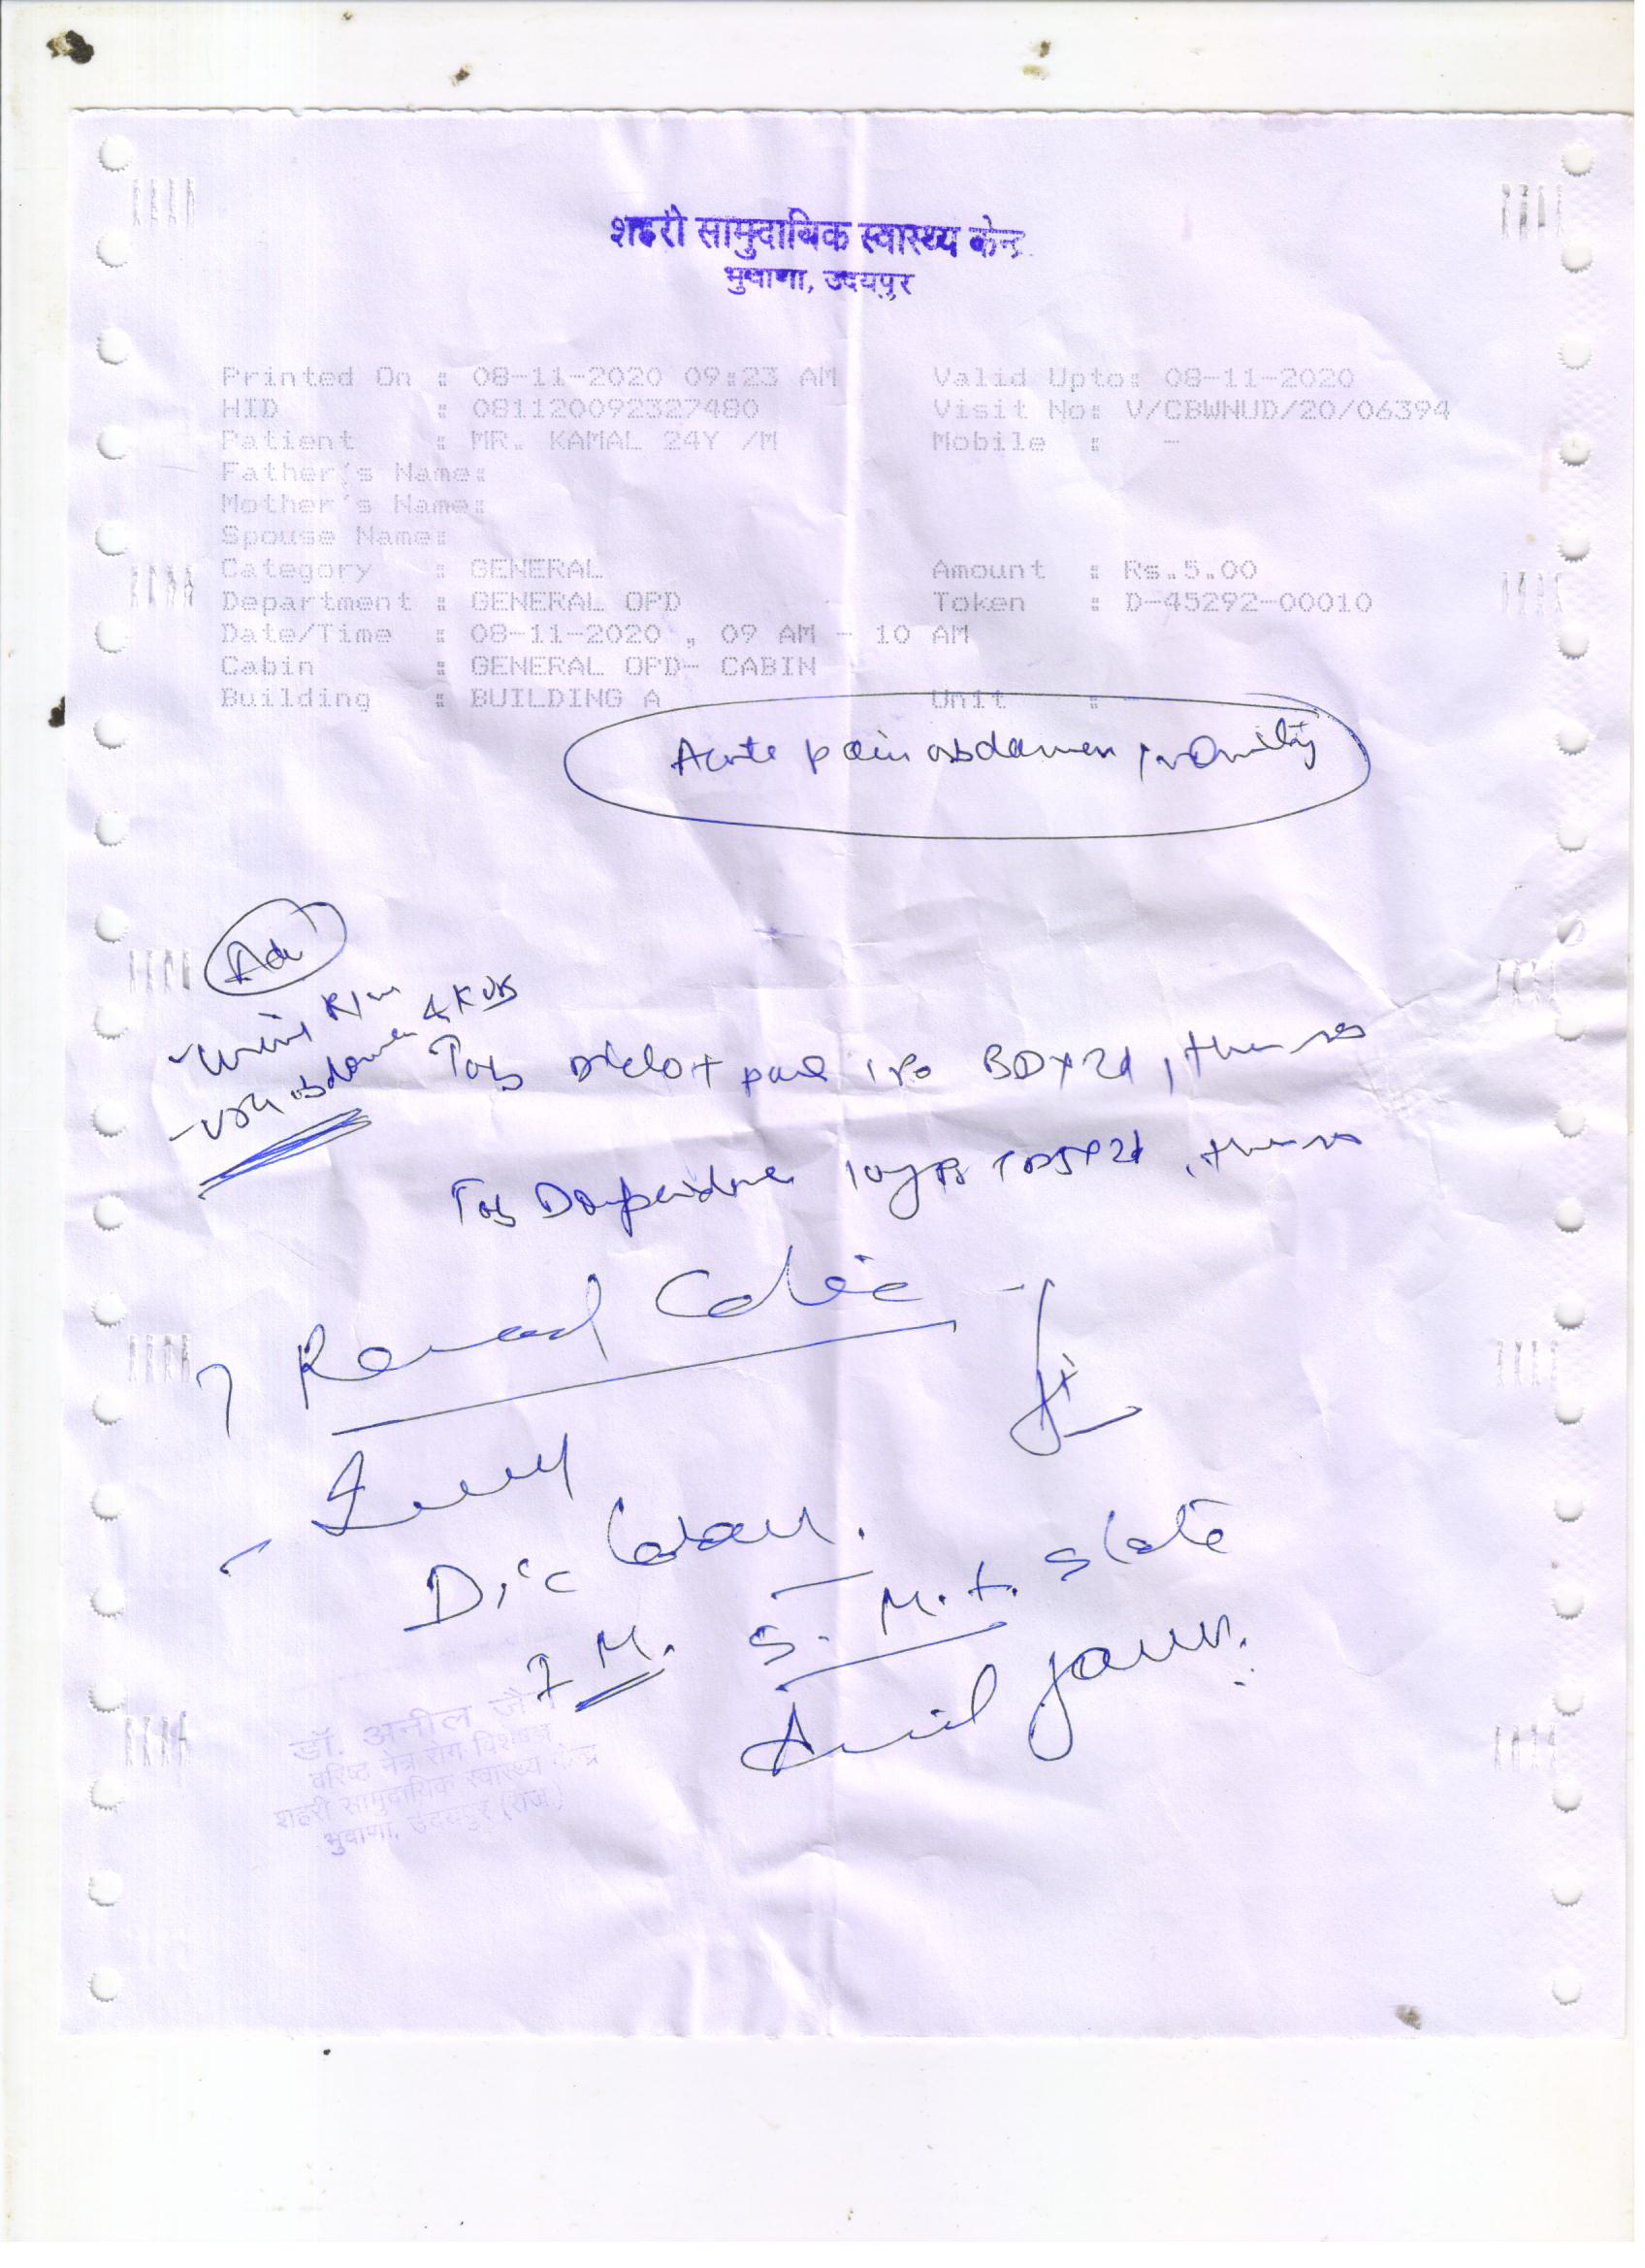 शहरी सामुदायिक स्वास्थ्य केन्द्र
भुवाणा, उदयपुर
Printed On : 08-11-2020 09:23 AM Valid Upto: 08-11-2020
HID : 081120092327480 Visit No: V/CBWNUD/20/06394
Patient : MR. KAMAL 24Y /M Mobile : -
Father's Name:
Mother's Name:
Spouse Name:
Category : GENERAL Amount : Rs.5.00
Department : GENERAL OPD Token : D-45292-00010
Date/Time : 08-11-2020 , 09 AM - 10 AM
Cabin : GENERAL OPD- CABIN
Building : BUILDING A Unit :
Acute pain abdomen vomiting
Adv
- Urine R/M
- USG abdomen & KUB
Tab Diclo + para 1 po BD x 2d, then sos
Tab Domperidone 10mg TDS x 2d, then sos
? Renal Colic
Inj
M. S. M.+. State
Anil Jain
डॉ. अनील जैन
वरिष्ठ नेत्र रोग विशेषज्ञ
शहरी सामुदायिक स्वास्थ्य केन्द्र
भुवाणा, उदयपुर (राज.)